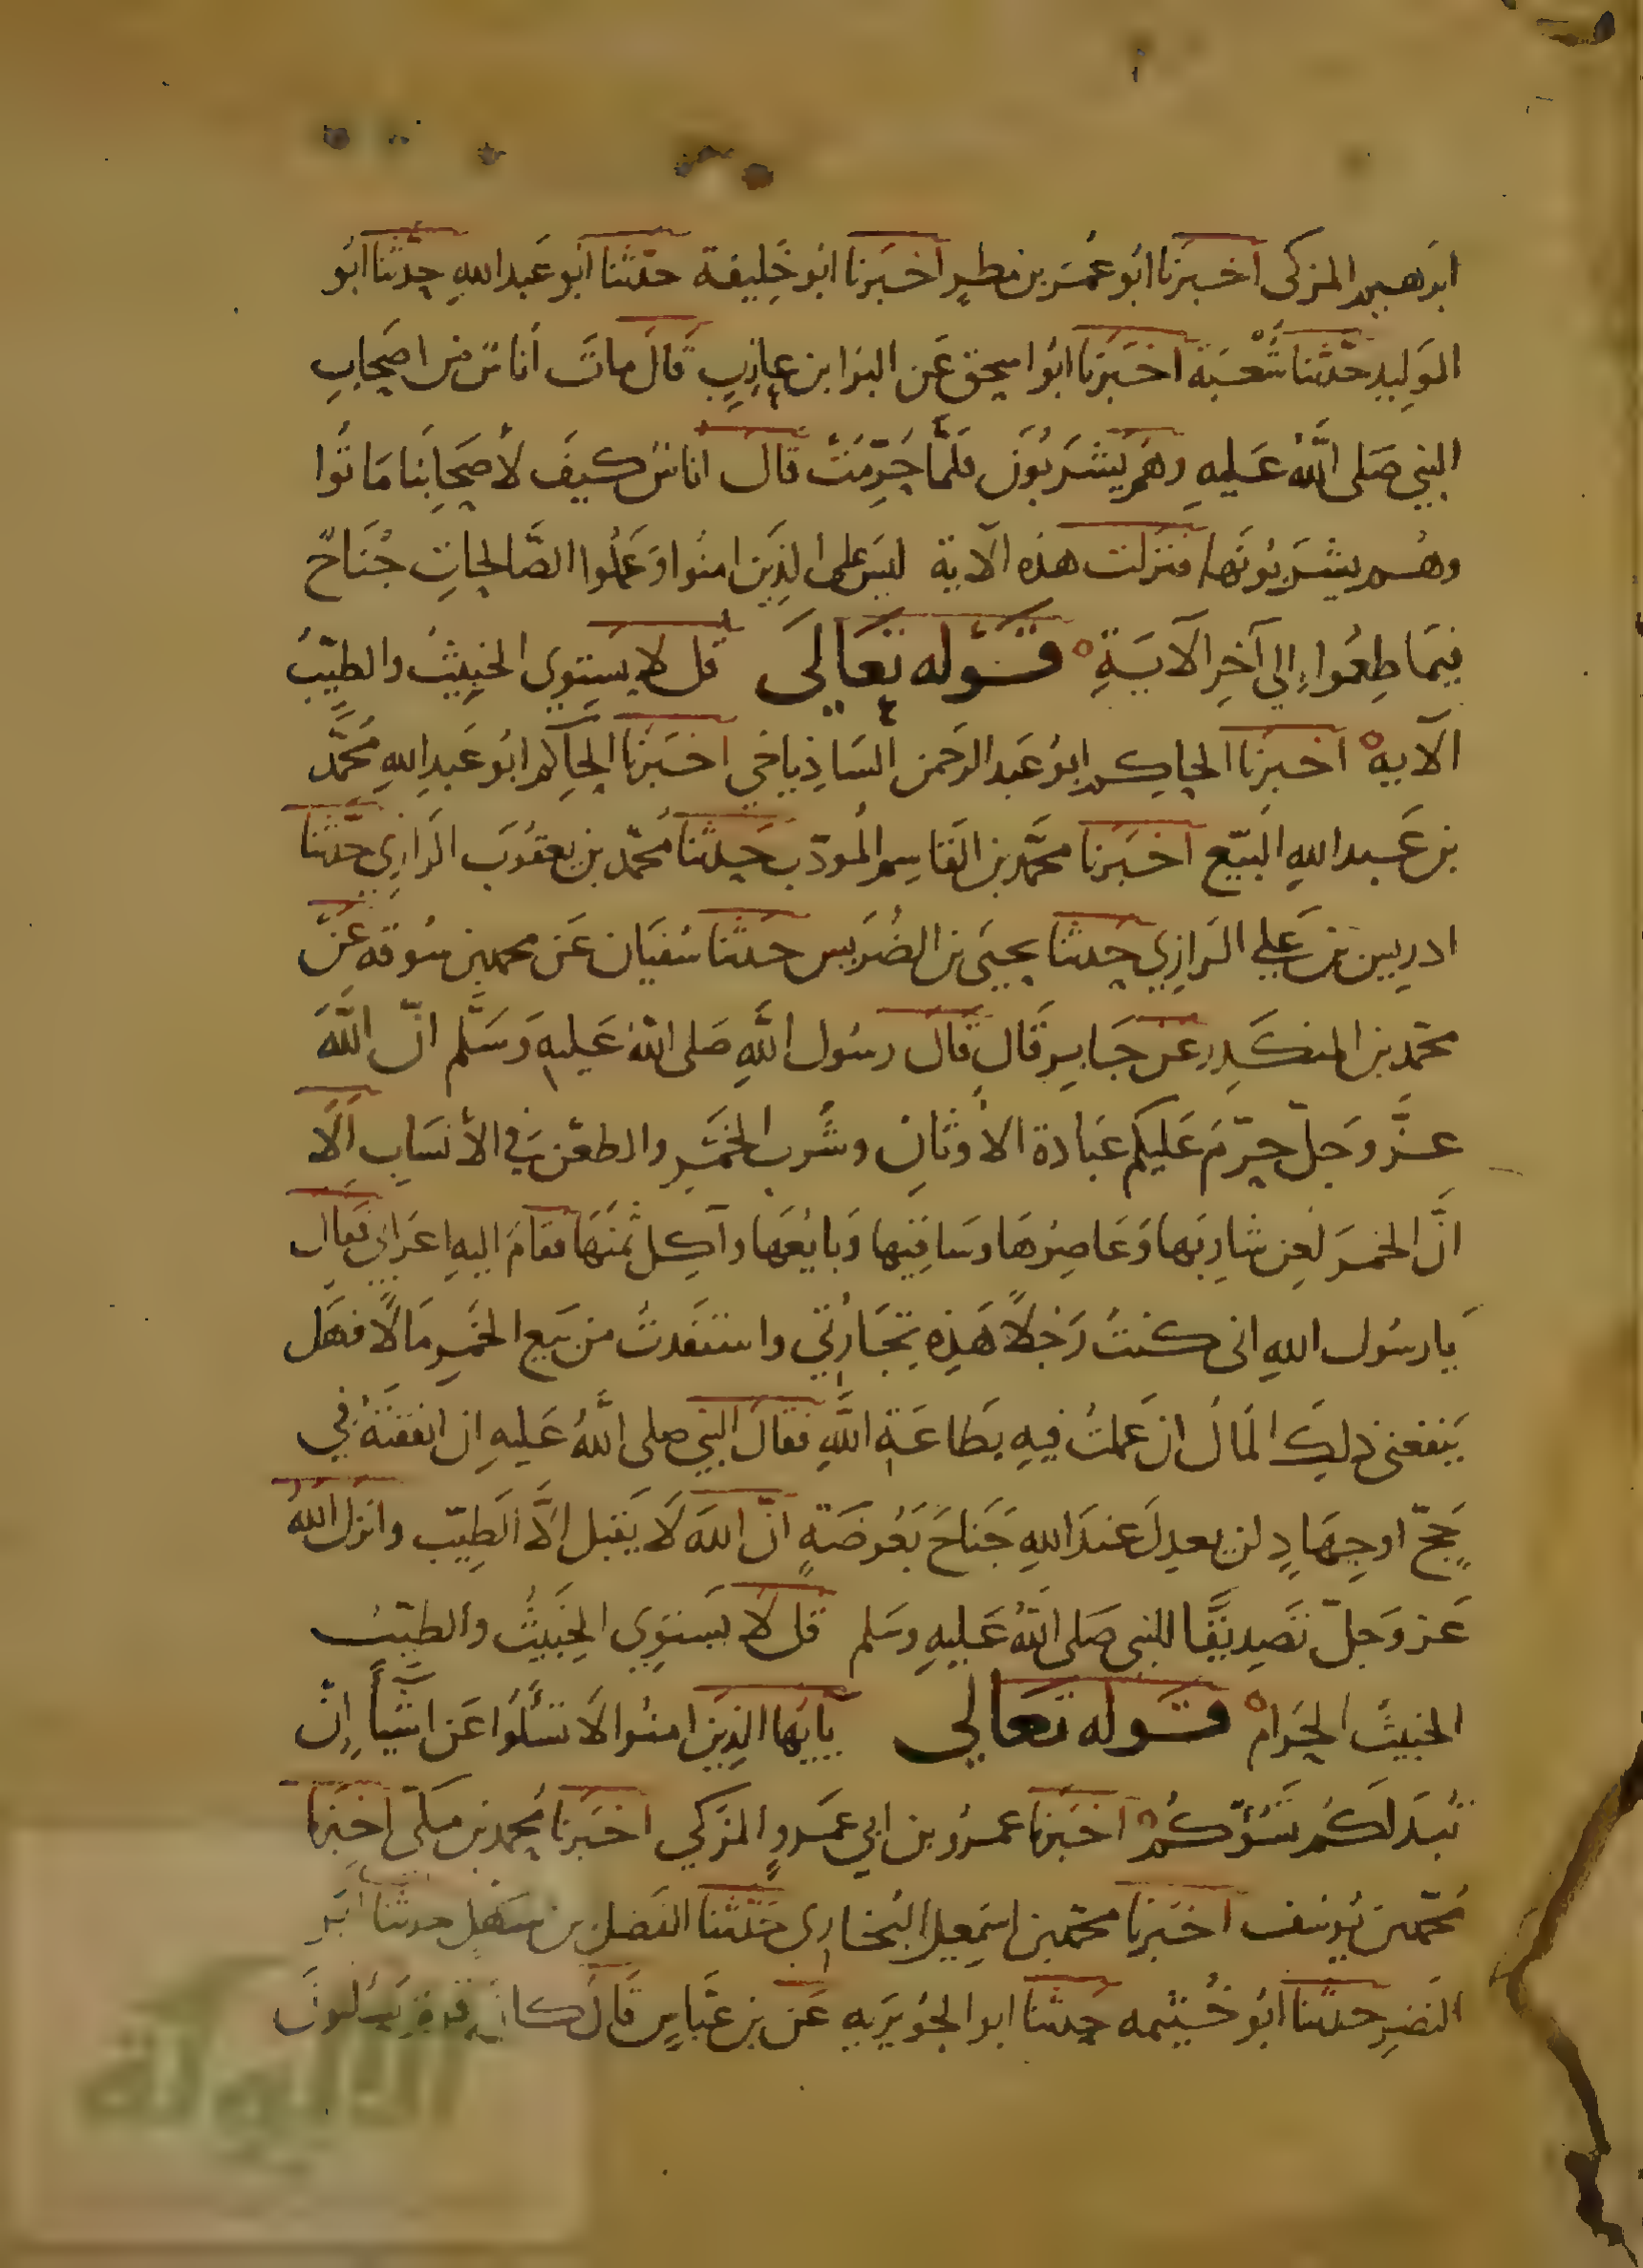 ابرهيم المزكى اخبرنا ابو عمر بن مطر اخبرنا ابو خليفة حدثنا ابو عبد الله حدثنا ابو
الوليد حدثنا شعبة اخبرنا ابو اسحق عن البرا بن عازب قال مات اناس من اصحاب
النبي صلى الله عليه وهم يشربون فلما حرمت قال اناس كيف لأصحابنا ماتوا
وهم يشربونها فنزلت هذه الآية ليس على الذين امنوا وعملوا الصالحات جناح
فيما طعموا إلي آخر الآية قوله تعالى قل لا يستوي الخبيث والطيب
الآيه اخبرنا الحاكم ابو عبد الرحمن الشاذياخي اخبرنا الحاكم ابو عبد الله محمد
بن عبد الله البيع اخبرنا محمد بن القاسم المودب حدثنا محمد بن يعقوب الرازي حدثنا
ادريس بن علي الرازي حدثنا يحيى بن الضريس حدثنا سفيان عن محمد بن سوقه عن
محمد بن المنكدر عن جابر قال قال رسول الله صلى الله عليه وسلم ان الله
عز وجل حرم عليكم عبادة الاوثان وشرب الخمر والطعن في الأنساب ألا
ان الخمر لعن شاربها وعاصرها وساقيها وبايعها وآكل ثمنها فقام اليه اعرابي فقال
يا رسول الله انى كنت رجلا هذه تجارتي واستفدت من بيع الخمر مالا فهل
ينفعنى ذلك المال ان عملت فيه بطاعة الله فقال النبي صلى الله عليه ان انفقته في
حج او جهاد لن يعدل عند الله جناح بعوضة ان الله لا يقبل الا الطيب وانزل الله
عز وجل تصديقا للنبى صلى الله عليه وسلم قل لا يستوي الخبيث والطيب
الخبيث الحرام قوله تعالى يايها الذين امنوا لا تسئلوا عن اشيأ إن
تبد لكم تسؤكم اخبرنا عمرو بن ابي عمرو المزكي اخبرنا محمد بن مكى اخبرنا
محمد بن يوسف اخبرنا محمد بن اسمعيل البخاري حدثنا الفضل بن سهل حدثنا ابو
النضر حدثنا ابو خيثمه حدثنا ابو الجويريه عن بن عباس قال كان قوم يسئلون
الألوكة